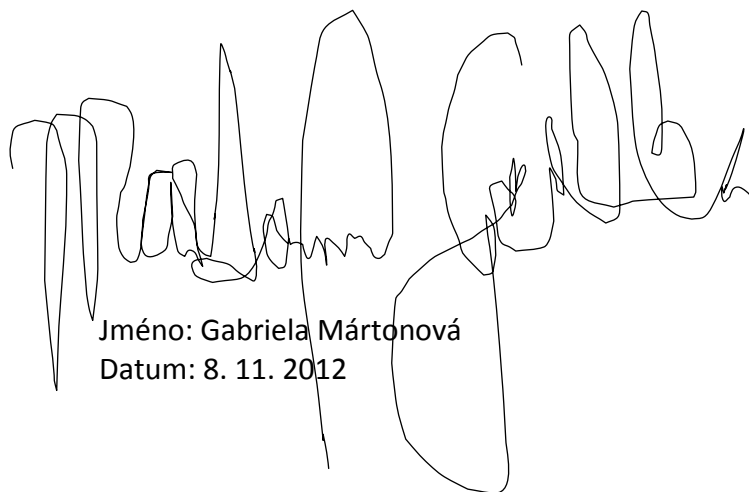 Jméno: Gabriela Mártonová
Datum: 8. 11. 2012